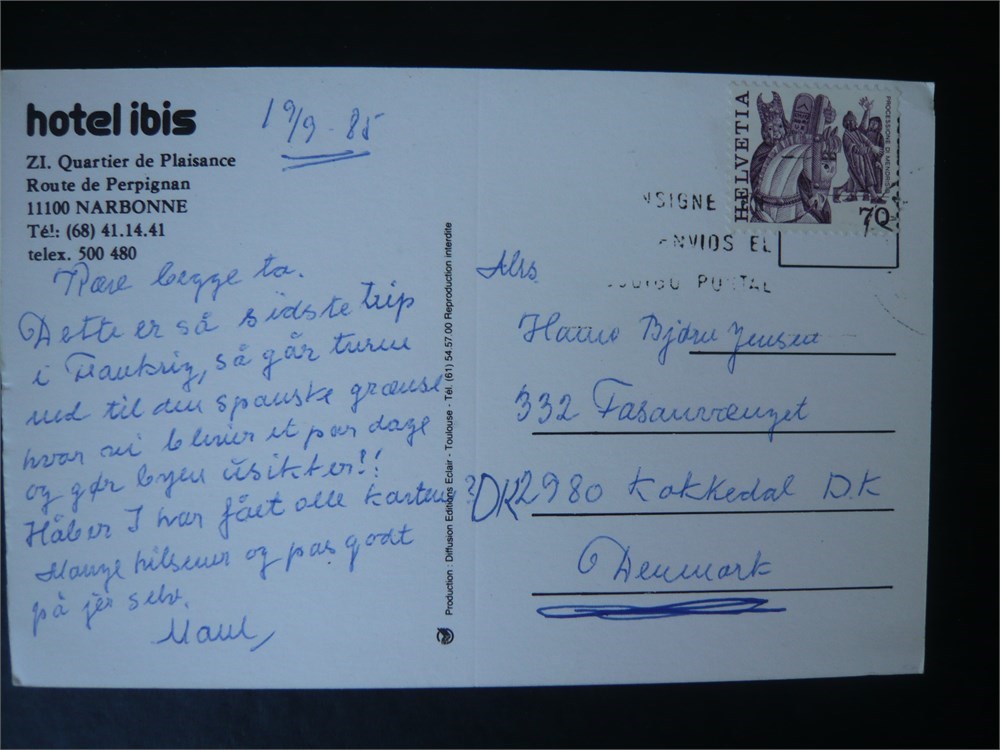 hotel ibis
19/9-85
ZI. Quartier de Plaisance
Route de Perpignan
11100 NARBONNE
Tél: (68) 41.14.41
telex. 500 480
Kære begge to.
Dette er så sidste trip
i Frankrig, så går turen
ned til den spanske grænse
hvor vi bliver et par dage
og gør byen usikker!!
Håber I har fået alle kortene?
Mange hilsner og pas godt
på jer selv.
Production : Diffusion Editions Eclair - Toulouse - Tél. (61) 54.57.00 Reproduction interdite
HELVETIA
PROCESSIONE DI MENDRISIO
70
NSIGNE
ENVIOS EL
POSTAL
Hanne Bjørn Jensen
332 Fasanvænget
DK 2980 Kokkedal DK
Denmark